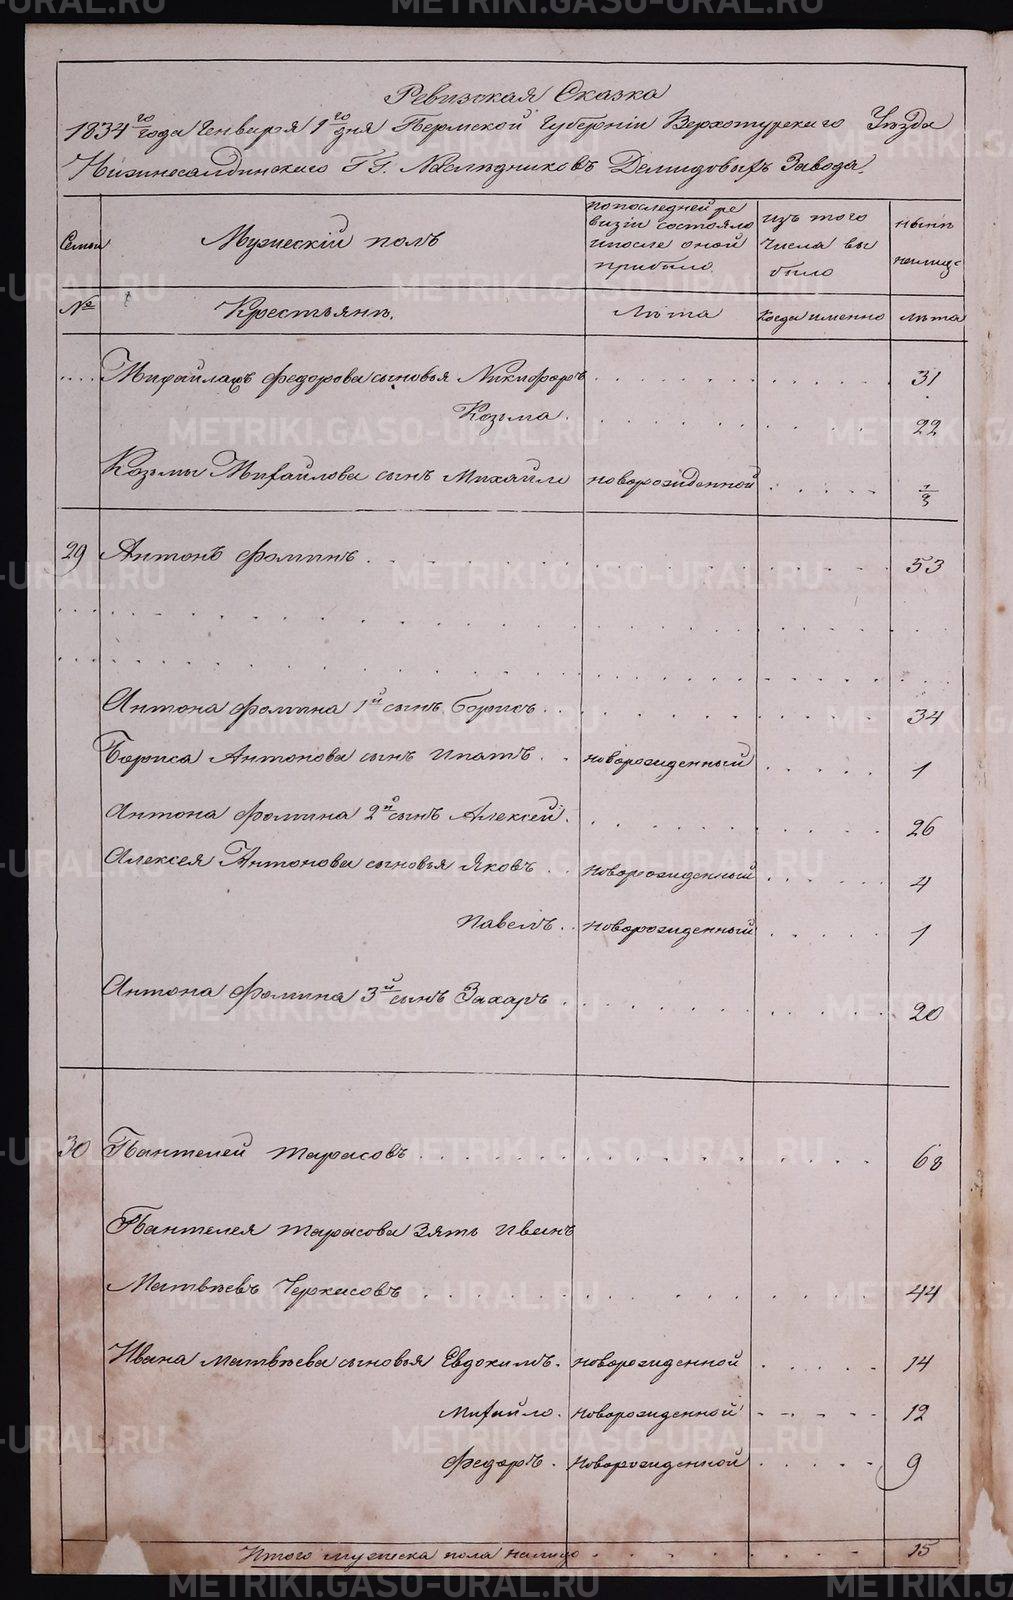 Ревизская Сказка
1834го года Генваря 1го дня Пермской Губернiи Верхотурскаго Уѣзда
Нижнесалдинскаго ГГ. Наслѣдниковъ Демидовыхъ Завода.
Семьи
Мужескiй полъ
по последней ре
визiи состояло
и после оной
прибыло
изъ того
числа вы
было
ныне
налицо
№
Крестьяне.
Лѣта
Когда именно
лѣта
Федорова сыновья Никифоръ 31
Козьма 22
Козьмы Михайлова сынъ Михайло новорожденной
29 Антонъ Фоминъ 53
Антона Фомина 1й сынъ Борисъ 34
Бориса Антонова сынъ Ипатъ новорожденный 1
Антона Фомина 2й сынъ Алексей 26
Алексея Антонова сыновья Яковъ новорожденный 4
Павелъ новорожденный 1
Антона Фомина 3й сынъ Захаръ 20
30 Пантелей Тарасовъ 68
Пантелея Тарасова зять Иванъ
Матвѣевъ Черкасовъ 44
Ивана Матвѣева сыновья Евдокимъ новорожденной 14
Михайло новорожденной 12
Федоръ новорожденной 9
Итого мужеска пола налицо 15
METRIKI.GASO-URAL.RU